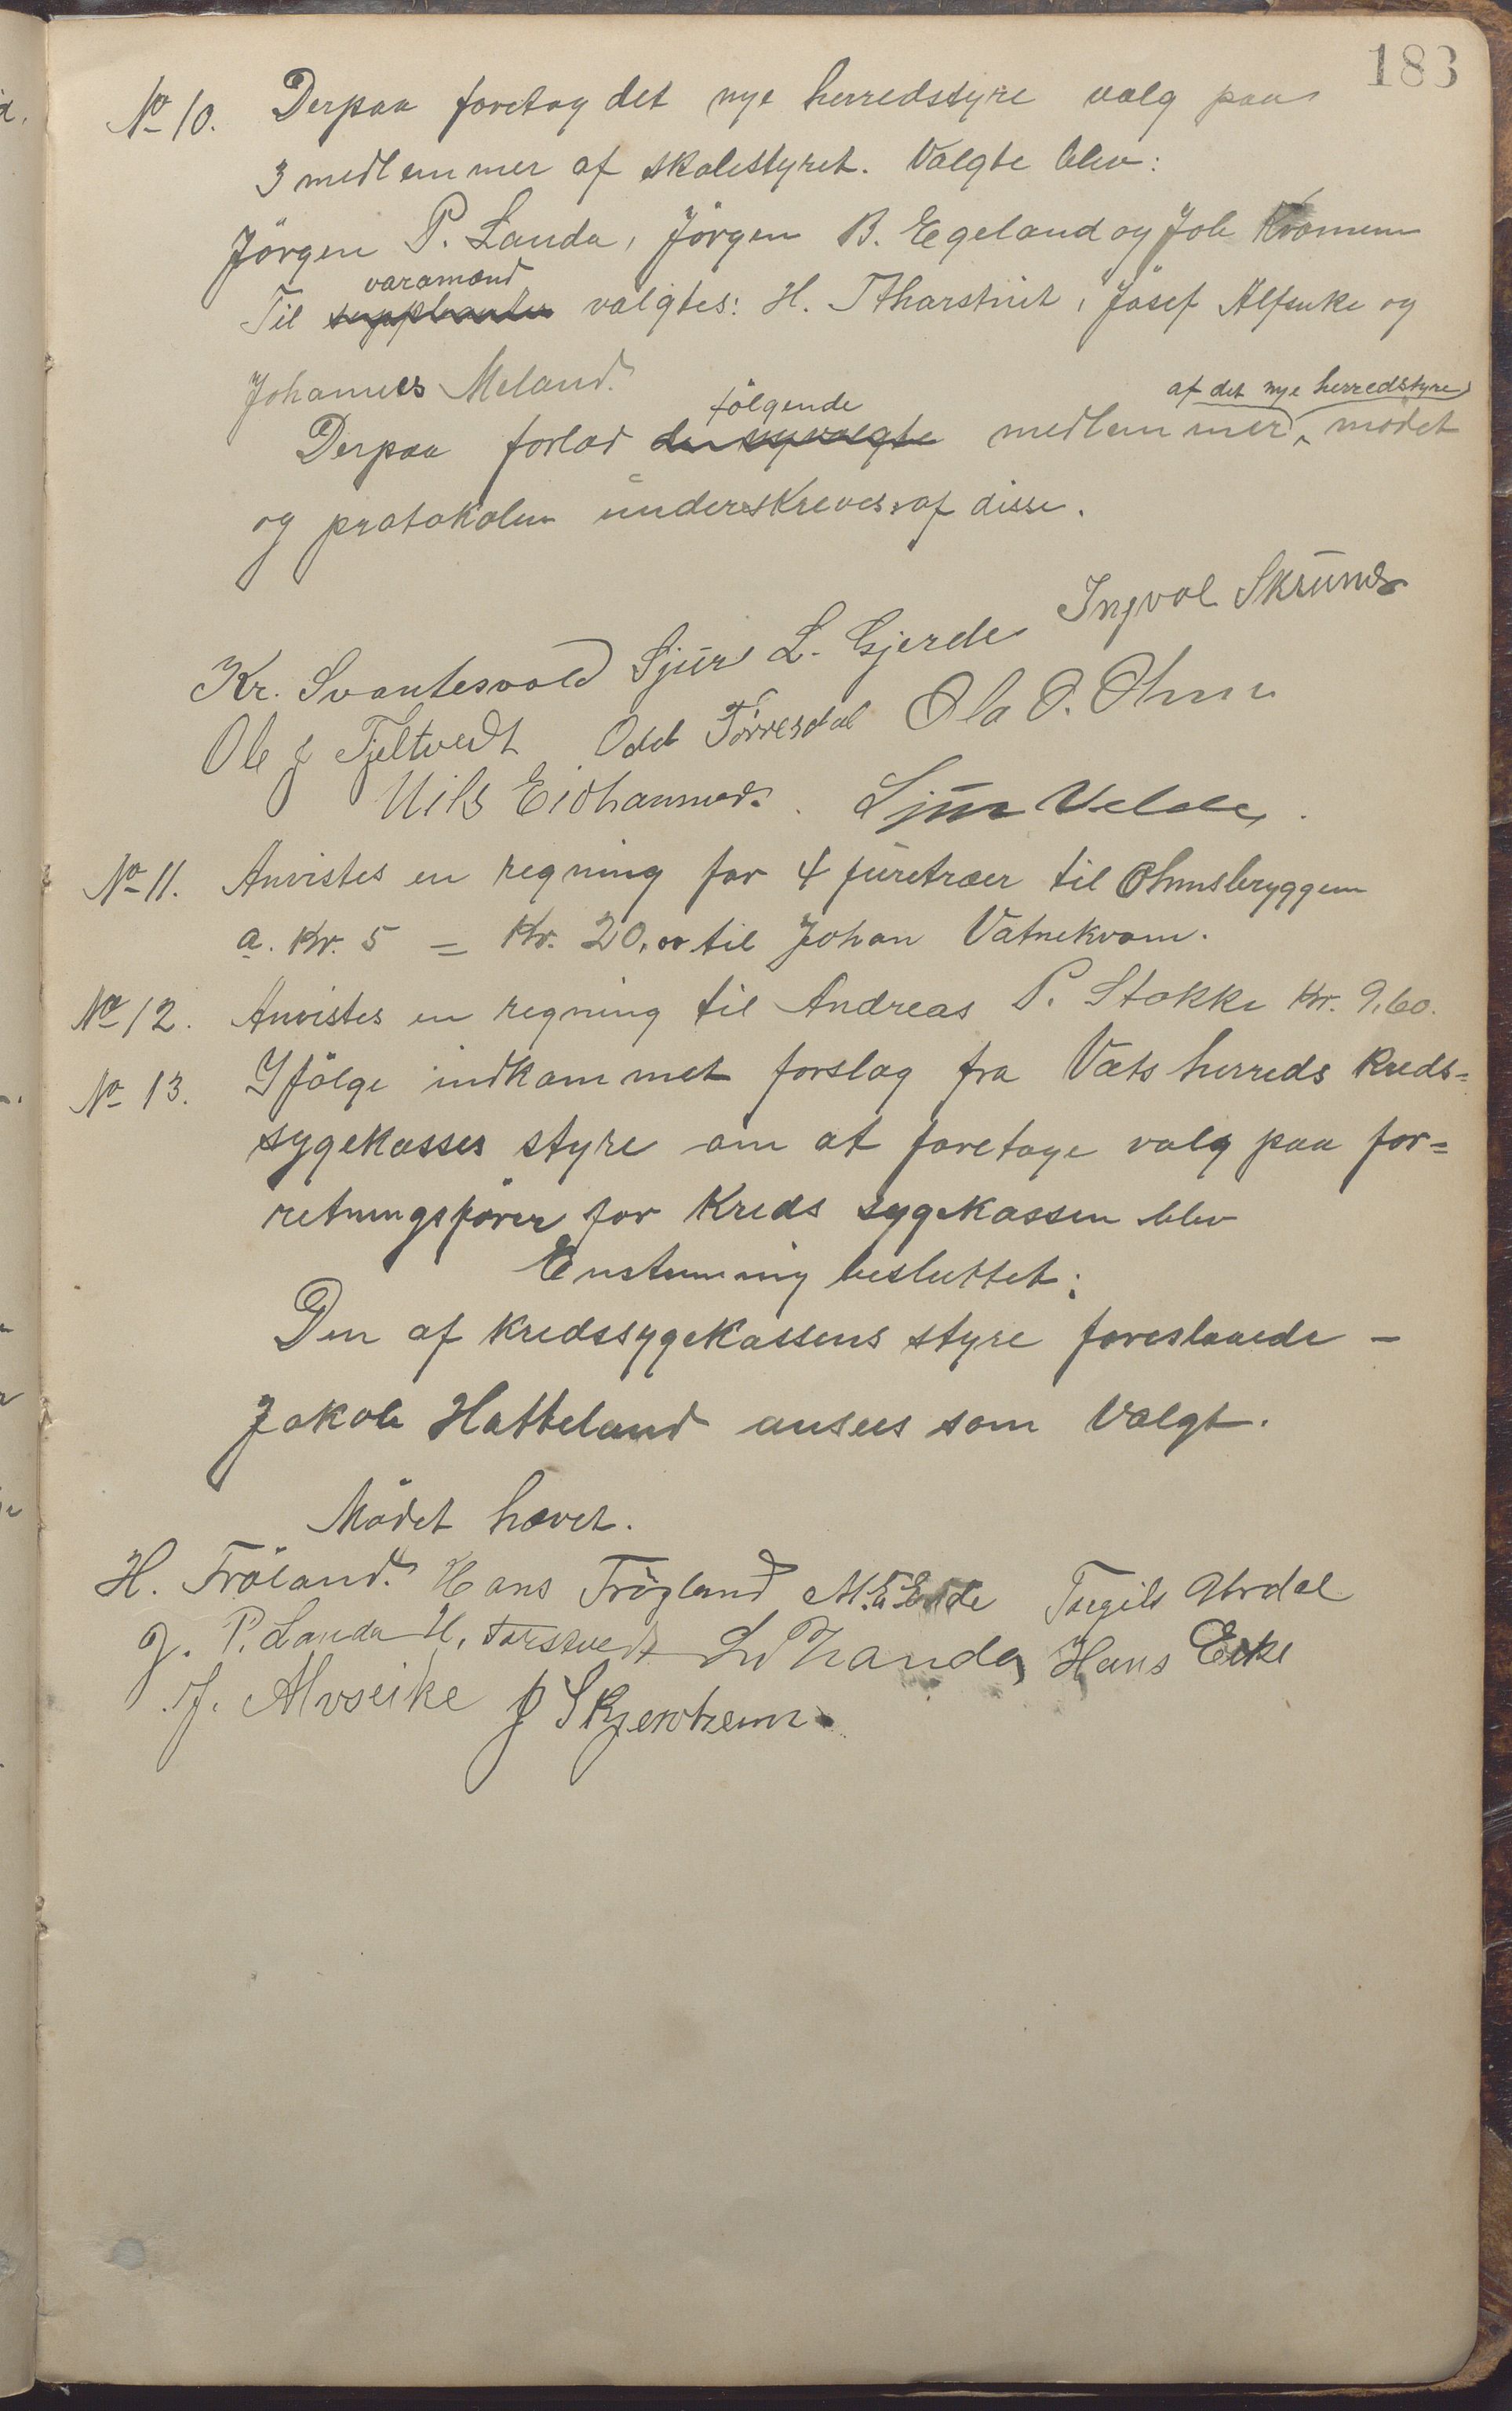 183
No 10. Derpaa foretog det nye herredsstyre valg paa
3 medlemmer af skolestyret. Valgte blev:
Jörgen P. Landa, Jörgen B. Egeland og Job Kvamen
varamænd
Til suppleanter valgtes: H. Tharstveit, Josef Alfseike og
Johannes Meland.
følgende af det nye herredstyre
Derpaa forlod de nyvalgte medlemmer mødet
og protokolen underskreves af disse.
Ingval Skrunes
Kr. Svantesvold Sjur L. Gjerde
Ole J Fjeltvedt Odd Törresdal Ola O. Ohm
Nils Eidhammer. Sjur Velde.
No 11. Anvistes en regning for 4 furetræer til Ohmsbryggen
a. Kr. 5 = Kr. 20,00 til Johan Vatnekvam.
No 12. Anvistes en regning til Andreas P. Stokke Kr. 9,60.
No 13. Ifölge indkommet forslag fra Vats herreds Kreds=
sygekasses styre om at foretage valg paa for=
retningsfører for Kreds sygekassen blev
Enstemmig besluttet:
Den af kredssygekassens styre foreslaaede –
Jakob Hatteland ansees som Valgt.
Mödet hævet.
H. Fröland. Hans Frögland M. E. Eide Torgils Abrdal
J. P. Landa H. Torstvedt Landa Hans Eike
J. Alvseike J Skjervheim.